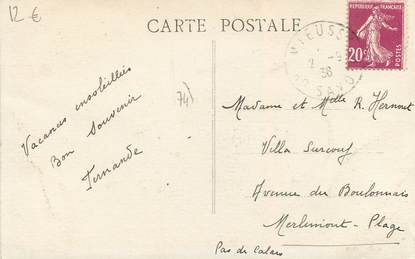 12 €
CARTE POSTALE
VIEUSS
2 -9
38
SAVOI
REPUBLIQUE FRANÇAISE
20c
POSTES
74)
Vacances ensoleillées
Bon Souvenir
Fernande
Madame et Melle R. Hernout
Villa Surcouf
Avenue du Boulonnais
Merlimont-Plage
Pas de Calais